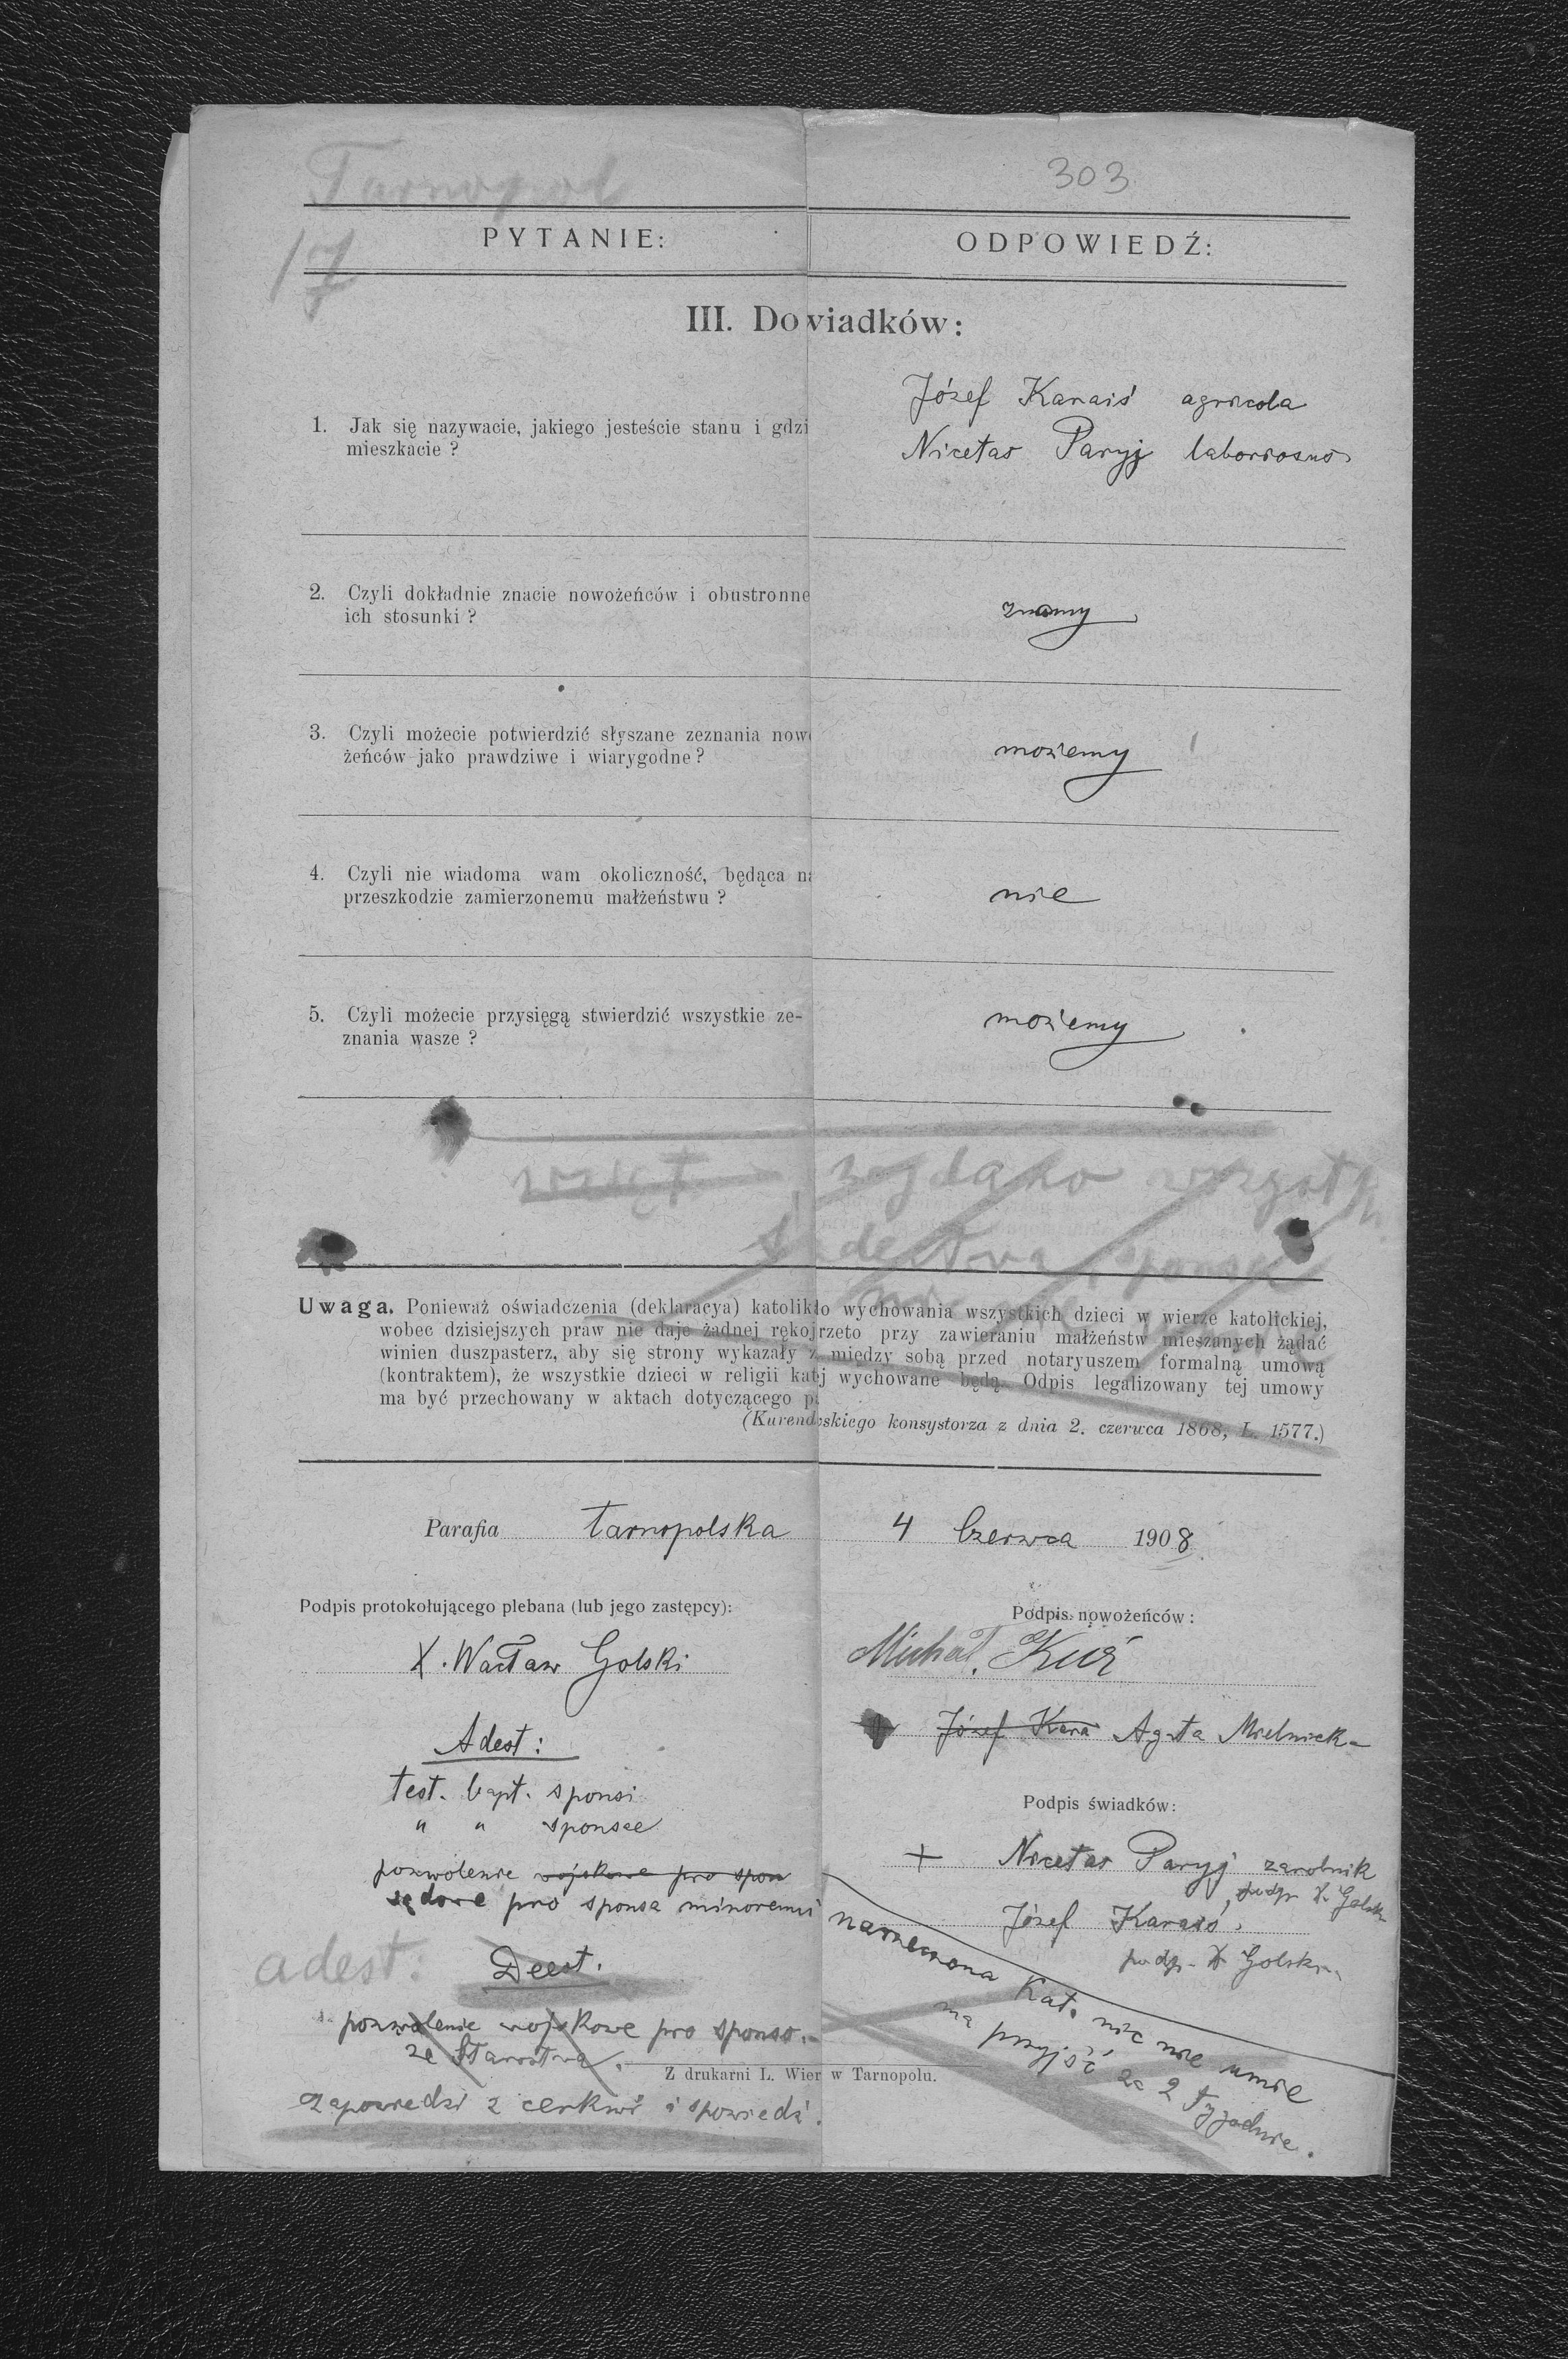 Tarnopol
303
17
PYTANIE:
ODPOWIEDŹ:
III. Do wiadków:
Józef Karaiś agricola
1. Jak się nazywacie, jakiego jesteście stanu i gdzi
mieszkacie ?
Nicetas Paryj laboriosus
2. Czyli dokładnie znacie nowożeńców i obustronne
ich stosunki ?
znamy
3. Czyli możecie potwierdzić słyszane zeznania now
żeńców jako prawdziwe i wiarygodne ?
możemy !
4. Czyli nie wiadoma wam okoliczność, będąca na
przeszkodzie zamierzonemu małżeństwu ?
nie
5. Czyli możecie przysięgą stwierdzić wszystkie ze-
znania wasze ?
możemy
Uwaga. Ponieważ oświadczenia (deklaracya) katolik o wychowania wszystkich dzieci w wierze katolickiej,
wobec dzisiejszych praw nie daje żadnej rękoj rzeto przy zawieraniu małżeństw mieszanych żądać
winien duszpasterz, aby się strony wykazały z między sobą przed notaryuszem formalną umową
(kontraktem), że wszystkie dzieci w religii kat j wychowane będą. Odpis legalizowany tej umowy
ma być przechowany w aktach dotyczącego p
(Kurend skiego konsystorza z dnia 2. czerwca 1868, L. 1577.)
Parafia Tarnopolska 4 Czerwca 1908
Podpis protokołującego plebana (lub jego zastępcy):
Podpis nowożeńców :
X. Wacław Golski
Michał Kuś
Józef Kara Agata Mielnicka
Adest :
test. bapt. sponsi
" " sponsae
Podpis świadków:
+ Nicetas Paryj zarobnik
podp X Golski
pozwolenie wojskowe pro spon
sądowe pro sponsa minorenni
Józef Karaiś.
podp. X Golski
adest:
Deest.
pozwolenie wojskowe pro sponso.
ze Starostwa.
narzeczona Kat. nic nie umie
ma przyjść za 2 tygodnie.
Z drukarni L. Wier w Tarnopolu.
Zapowiedzi z cerkwi i spowiedź.